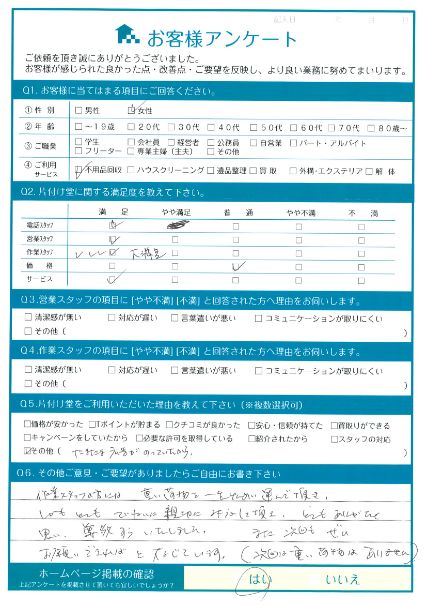 記入日 年 月 日
お客様アンケート
ご依頼を頂き誠にありがとうございました。
お客様が感じられた良かった点・改善点・ご要望を反映し、より良い業務に努めてまいります。
Q1. お客様に当てはまる項目にご回答ください。
①性 別 □男性 ☑女性
②年 齢 □～19歳 □20代 □30代 □40代 □50代 □60代 □70代 □80歳～
③ご職業 □学生 □会社員 □経営者 □公務員 □自営業 □パート・アルバイト
□フリーター □専業主婦（主夫） □その他
④ご利用サービス ☑不用品回収 □ハウスクリーニング □遺品整理 □買 取 □外構・エクステリア □解 体
Q2. 片付け堂に関する満足度を教えて下さい。
満 足 やや満足 普 通 やや不満 不 満
電話スタッフ ☑ □ □ □
営業スタッフ ☑ □ □ □ □
作業スタッフ ☑ 大満足 □ □ □
価 格 □ □ ☑ □ □
サービス ☑ □ □ □ □
Q3. 営業スタッフの項目に [やや不満] [不満] と回答された方へ理由をお伺いします。
□清潔感が無い □対応が遅い □言葉遣いが悪い □コミュニケーションが取りにくい
□その他（ ）
Q4. 作業スタッフの項目に [やや不満] [不満] と回答された方へ理由をお伺いします。
□清潔感が無い □対応が遅い □言葉遣いが悪い □コミュニケーションが取りにくい
□その他（ ）
Q5. 片付け堂をご利用いただいた理由を教えて下さい（※複数選択可）
□価格が安かった □Tポイントが貯まる □クチコミが良かった □安心・信頼が持てた □買取りができる
□キャンペーンをしていたから □必要な許可を取得している □紹介されたから □スタッフの対応
☑その他（ のっていたから ）
Q6. その他ご意見・ご要望がありましたらご自由にお書き下さい
作業スタッフの方には 重い荷物を 運んで頂き、
しかも とても ていねいに親切に して頂き、とても ありがたく
思い、 いたしました。 また 次回も ぜひ
お願い できればと 思っています。（次回は重い荷物は ありません）
ホームページ掲載の確認
上記アンケートを掲載させて頂いても宜しいでしょうか？
はい いいえ